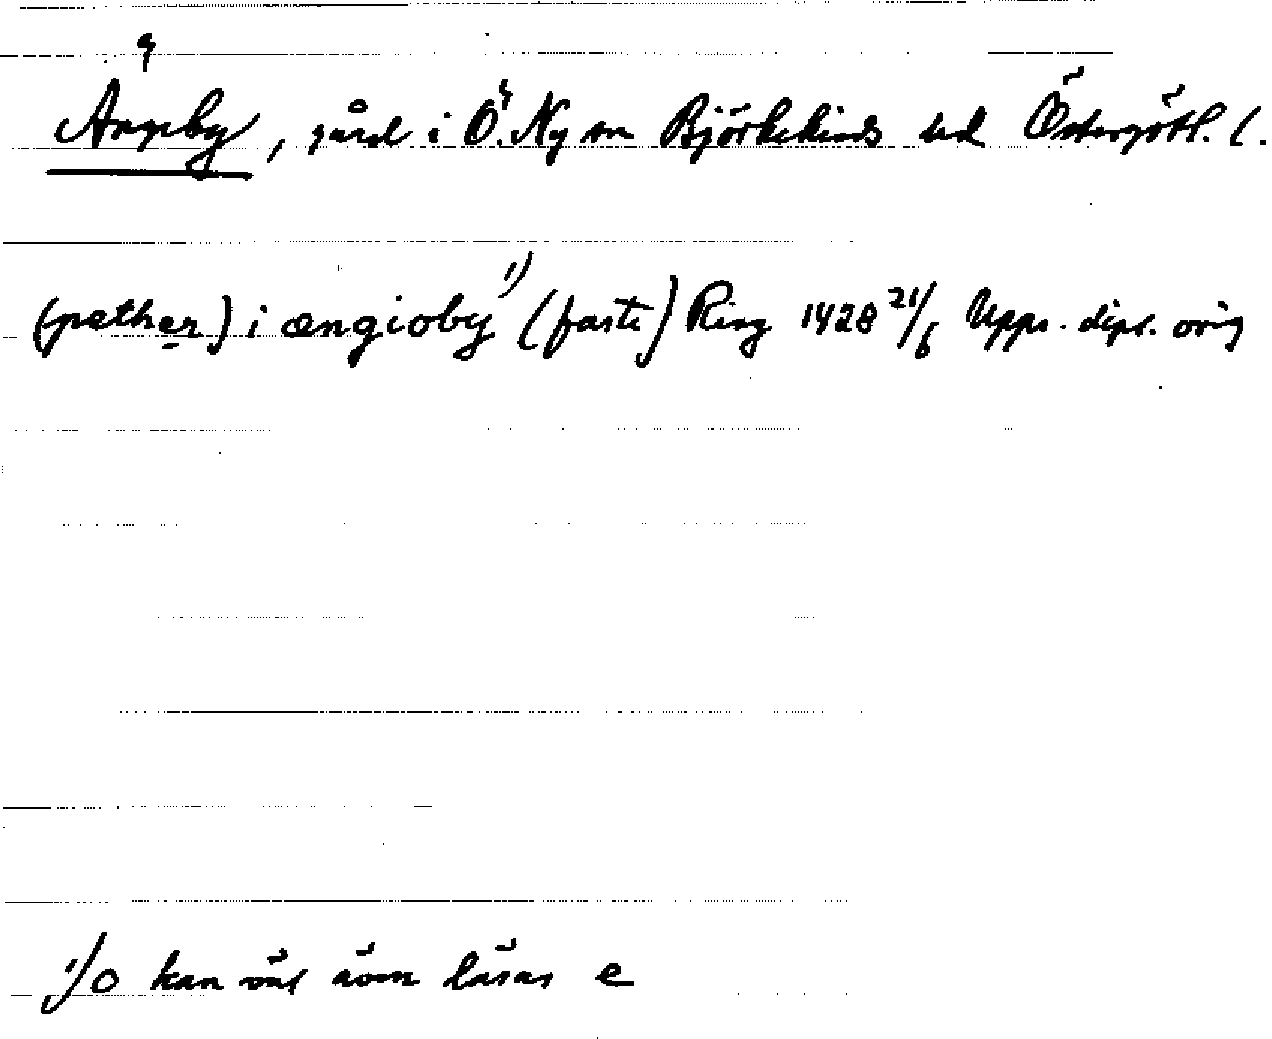 Ängeby, gård i Ö. Ny sn Björkekinds hd Östergötl. l.
(pether) i ængioby 1) (faste) Ring 1428 21/6 Upps. dipl. orig
1) o kan väl även läsas e